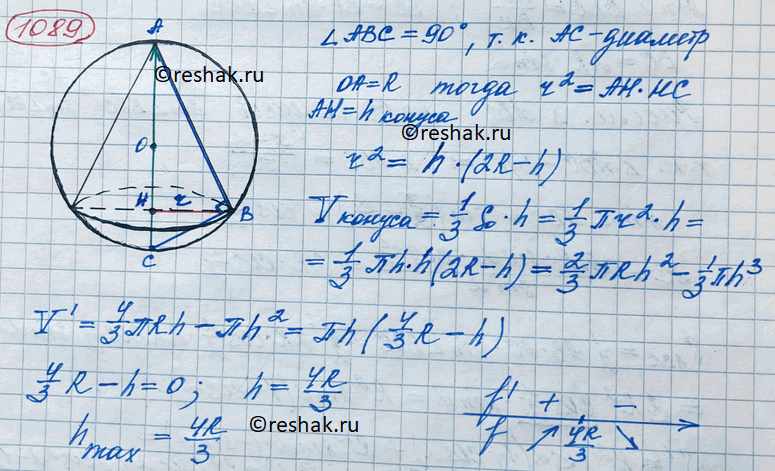 1089
A
© reshak.ru
O
H r
B
C
∠ABC = 90°, т.к. AC-диаметр
OA=R тогда r² = AH·HC
AH=h конуса
© reshak.ru
r² = h·(2R-h)
V конуса = 1/3 S₀·h = 1/3 πr²·h =
= 1/3 πh·h(2R-h) = 2/3 πRh² - 1/3 πh³
V' = 4/3 πRh - πh² = πh(4/3 R - h)
4/3 R - h = 0; h = 4R/3
h max = 4R/3
© reshak.ru
f' + -
f ↗ 4R/3 ↘